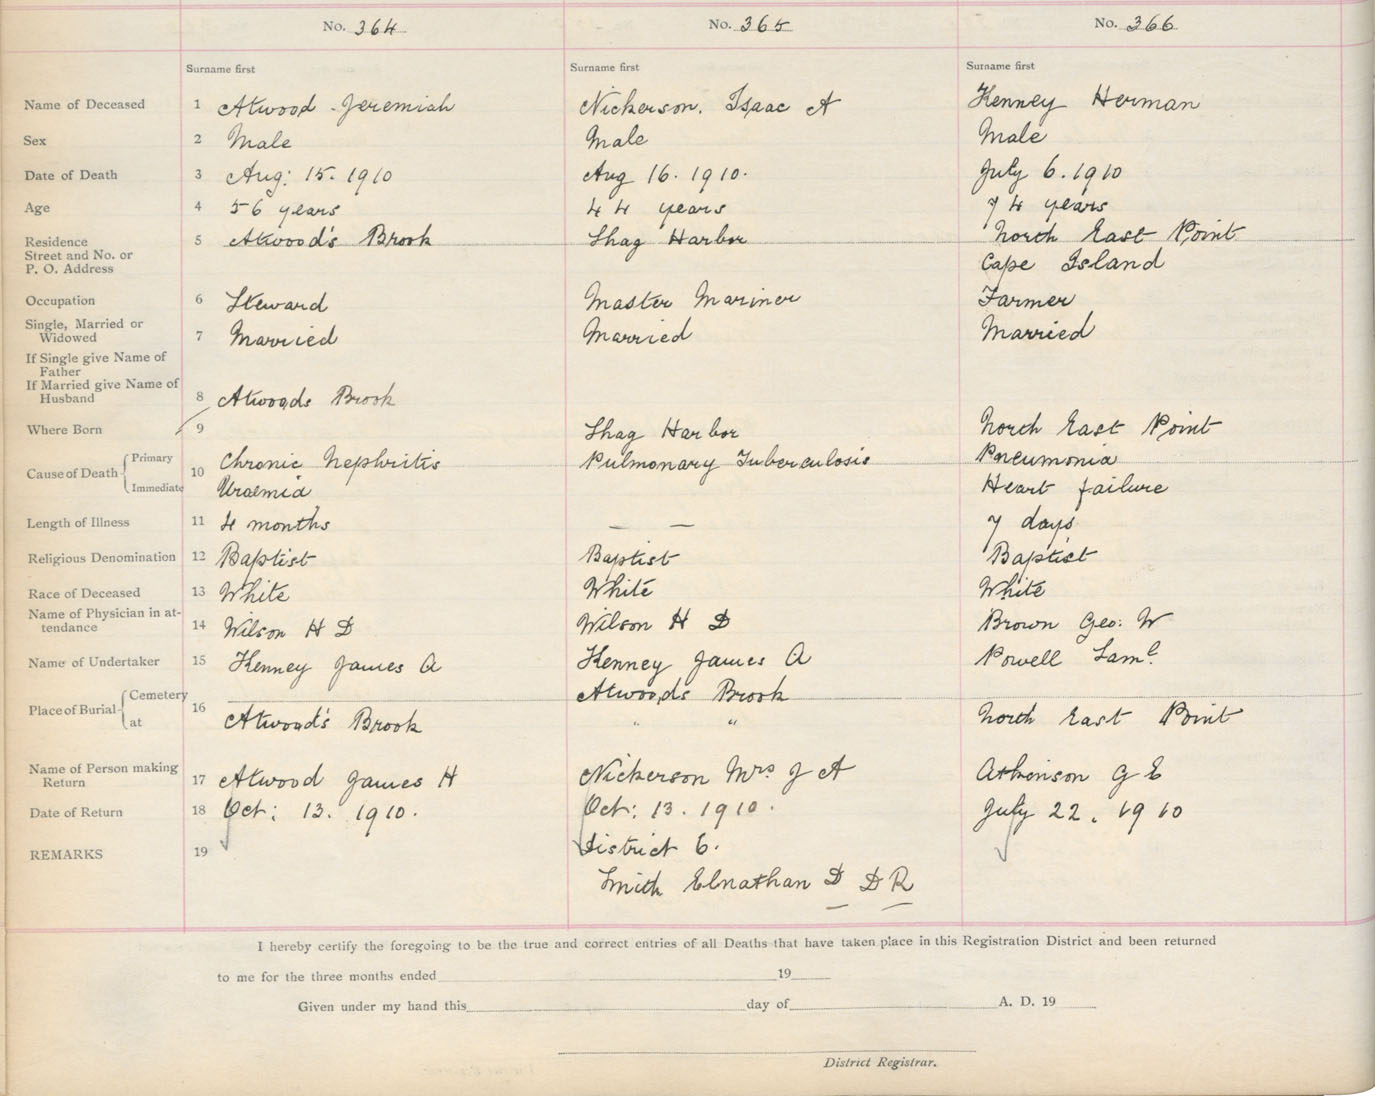 No. 364 No. 365 No. 366
Surname first Surname first Surname first
Name of Deceased 1 Atwood Jeremiah Nickerson. Isaac A Kenney Herman
Sex 2 Male Male Male
Date of Death 3 Aug: 15. 1910 Aug 16. 1910. July 6. 1910
Age 4 56 years 44 years 74 years
Residence 5 Atwood's Brook Shag Harbor North East Point
Street and No. or
P. O. Address Cape Island
Occupation 6 Steward Master Mariner Farmer
Single, Married or
Widowed 7 Married Married Married
If Single give Name of
Father
If Married give Name of
Husband 8 Atwoods Brook
Where Born 9 Shag Harbor North East Point
Cause of Death Primary 10 Chronic Nephritis Pulmonary Tuberculosis Pneumonia
Immediate Uraemia Heart failure
Length of Illness 11 4 months — — 7 days
Religious Denomination 12 Baptist Baptist Baptist
Race of Deceased 13 White White White
Name of Physician in at-
tendance 14 Wilson H D Wilson H D Brown Geo: W
Name of Undertaker 15 Kenney James A Kenney James A Powell Saml.
Place of Burial Cemetery 16 Atwoods Brook
at Atwood's Brook " " North East Point
Name of Person making
Return 17 Atwood James H Nickerson Mrs J A Atkinson G E
Date of Return 18 Oct: 13. 1910. Oct: 13. 1910. July 22. 1910
REMARKS 19 District 6.
Smith Elnathan D D R
I hereby certify the foregoing to be the true and correct entries of all Deaths that have taken place in this Registration District and been returned
to me for the three months ended 19
Given under my hand this day of A. D. 19
District Registrar.